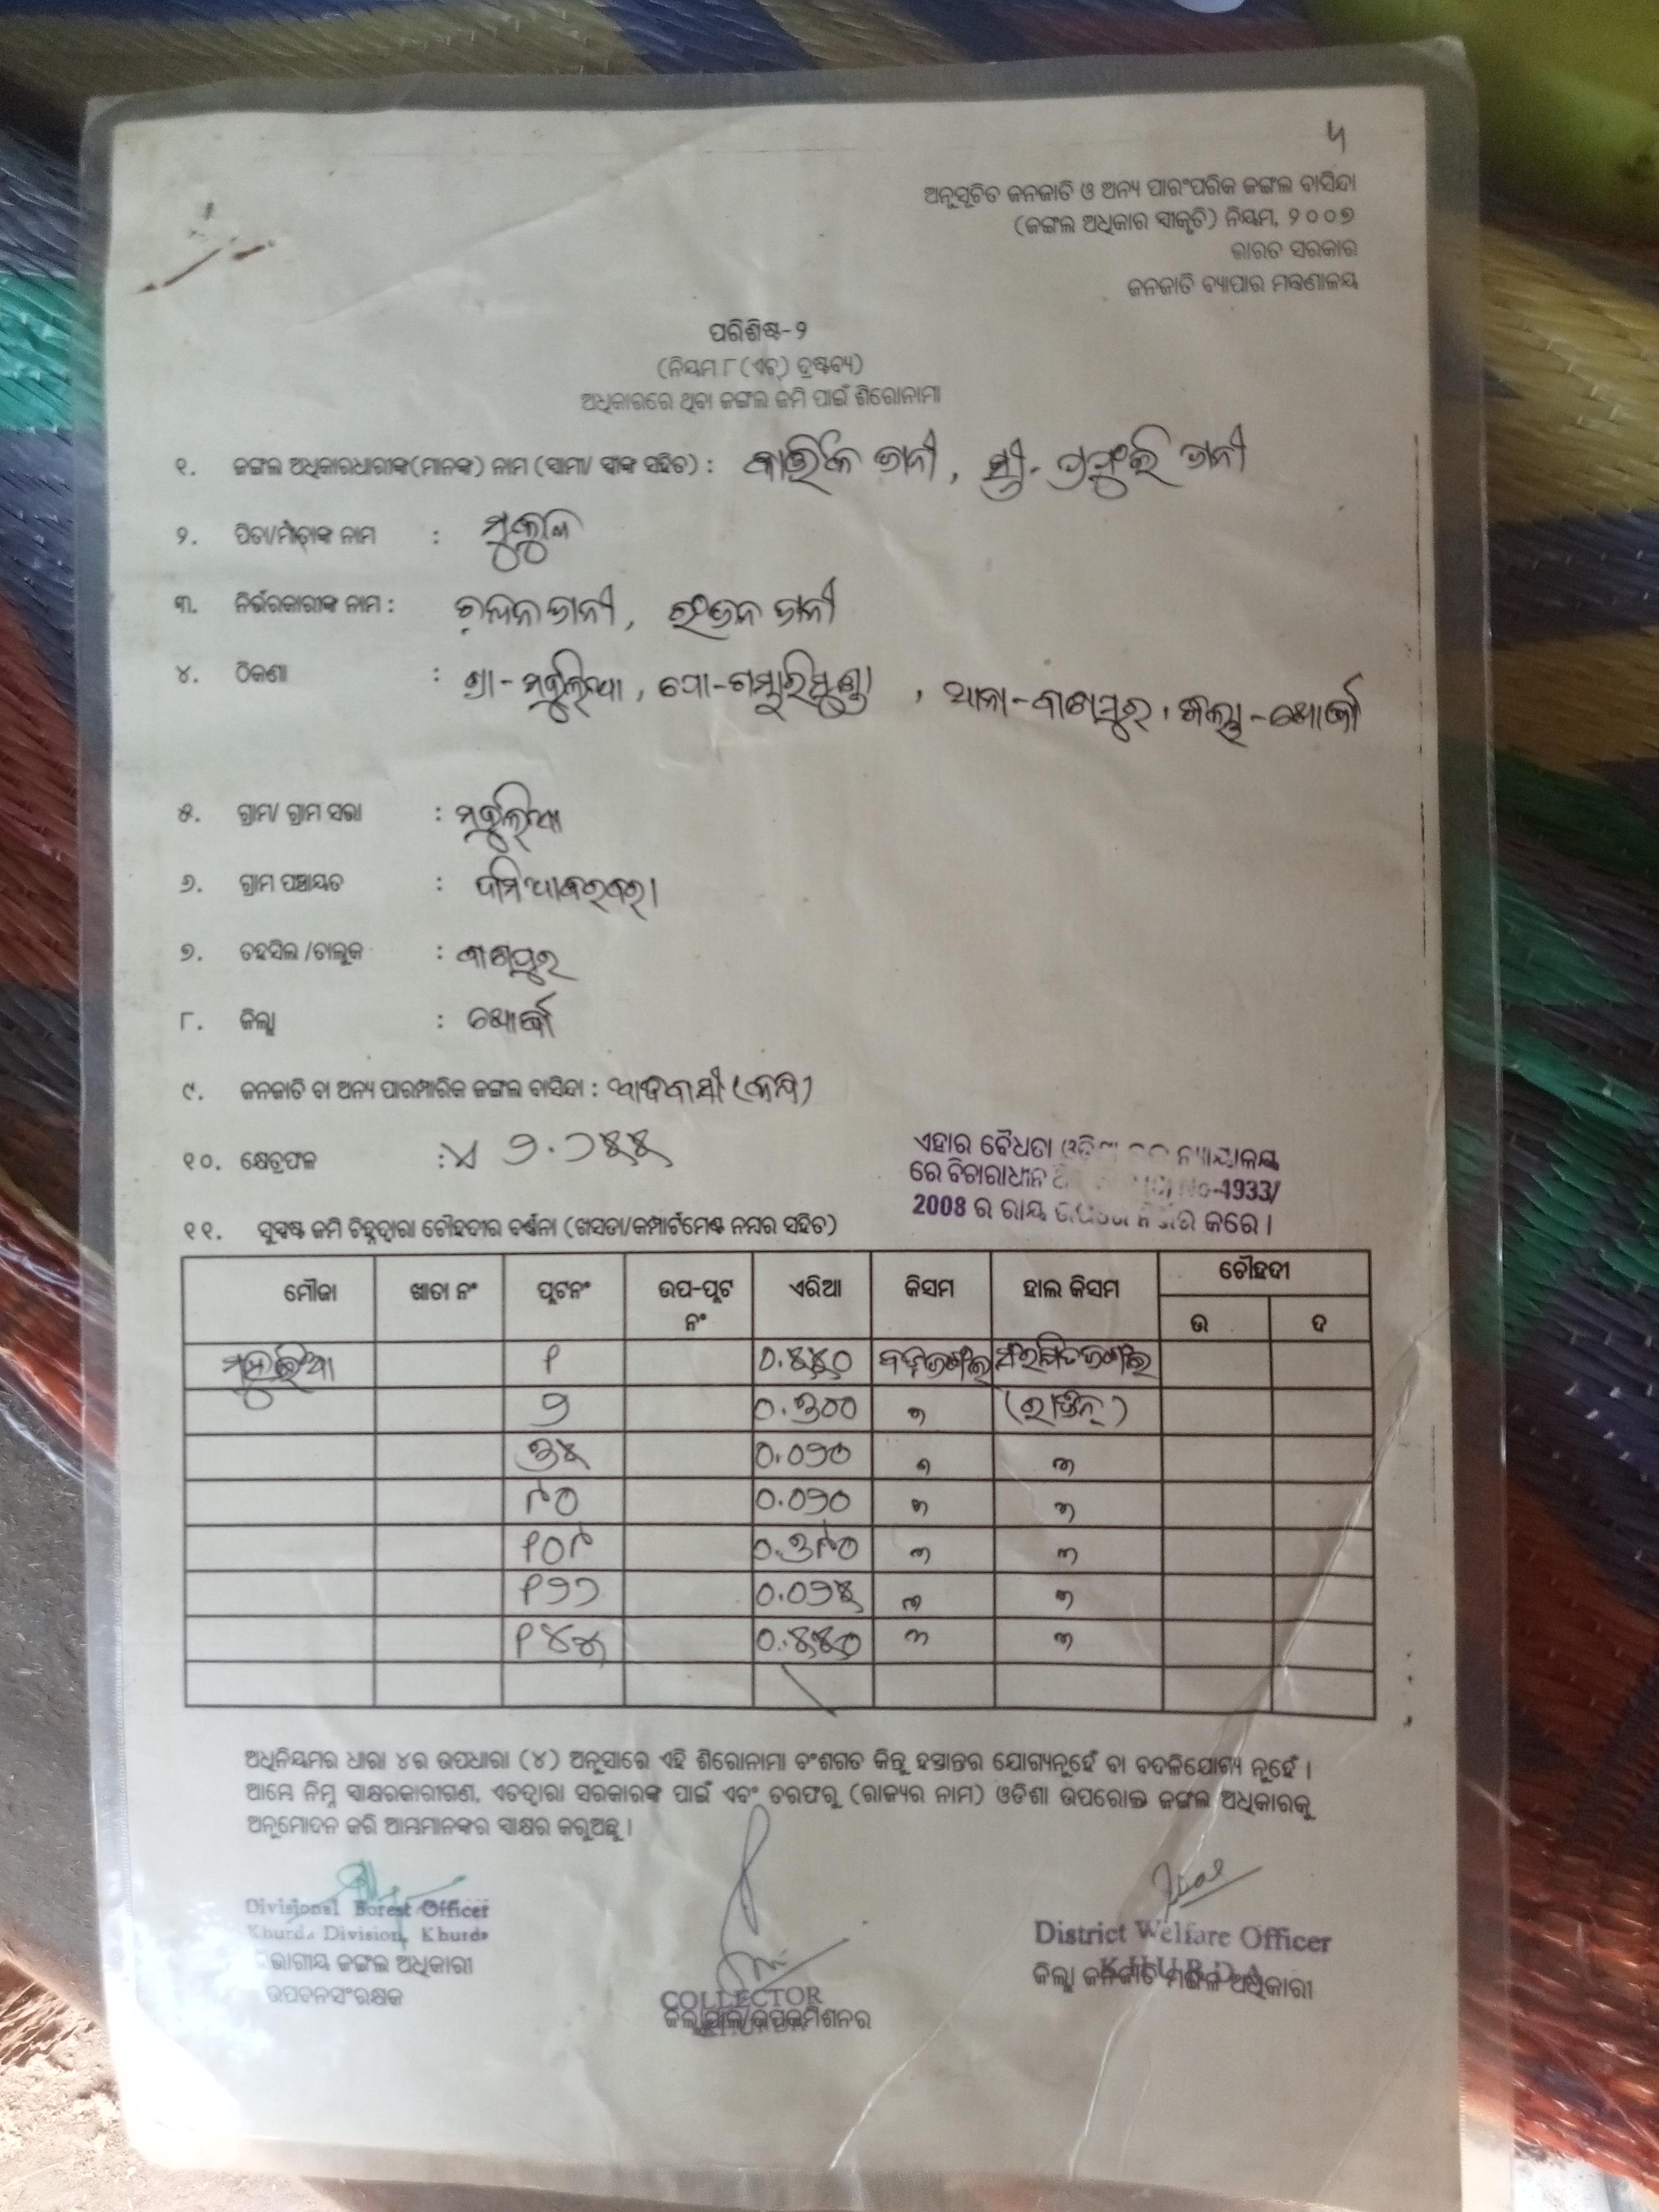 ୳
ଅନୁସୂଚିତ ଜନଜାତି ଓ ଅନ୍ୟ ପାରଂପରିକ ଜଙ୍ଗଲ ବାସିନ୍ଦା
(ଜଙ୍ଗଲ ଅଧିକାର ସ୍ବୀକୃତି) ନିୟମ, ୨୦୦୭
ଭାରତ ସରକାର
ଜନଜାତି ବ୍ୟାପାର ମନ୍ତ୍ରଣାଳୟ
ପରିଶିଷ୍ଟ-୨
(ନିୟମ ୮ (ଏଚ୍) ଦ୍ରଷ୍ଟବ୍ୟ)
ଅଧିକାରରେ ଥିବା ଜଙ୍ଗଲ ଜମି ପାଇଁ ଶିରୋନାମା
୧. ଜଙ୍ଗଲ ଅଧିକାରଧାରୀଙ୍କ(ମାନଙ୍କ) ନାମ (ସ୍ବାମୀ/ ସ୍ତ୍ରୀଙ୍କ ସହିତ) : କାର୍ତ୍ତିକ ଜାନୀ, ସ୍ତ୍ରୀ- ଜାନୀ
୨. ପିତା/ମାତାଙ୍କ ନାମ : ମୁକୁନ୍ଦ
୩. ନିର୍ଭରକାରୀଙ୍କ ନାମ : ଚନ୍ଦନ ଜାନୀ, ରଂଜନ ଜାନୀ
୪. ଠିକଣା : ଗ୍ରା- , ପୋ-ଗମ୍ଭାରିମୁଣ୍ଡା , ଥାନା-ବାଣପୁର, ଜିଲ୍ଲା-ଖୋର୍ଦ୍ଧା
୫. ଗ୍ରାମ/ ଗ୍ରାମ ସଭା :
୬. ଗ୍ରାମ ପଞ୍ଚାୟତ : ଦାମିଆବରବରା
୭. ତହସିଲ /ତାଲୁକ : ବାଣପୁର
୮. ଜିଲ୍ଲା : ଖୋର୍ଦ୍ଧା
୯. ଜନଜାତି ବା ଅନ୍ୟ ପାରମ୍ପାରିକ ଜଙ୍ଗଲ ବାସିନ୍ଦା : ଆଦିବାସୀ (କନ୍ଧ)
୧୦. କ୍ଷେତ୍ରଫଳ :
ଏହାର ବୈଧତା ନ୍ୟାୟାଳୟ
ରେ ବିଚାରାଧୀନ No-4933/
2008 ର ରାୟ ଉପରେ ନିର୍ଭର କରେ ।
୧୧. ସୁସ୍ପଷ୍ଟ ଜମି ଚିହ୍ନଦ୍ବାରା ଚୌହଦୀର ବର୍ଣ୍ଣନା (ଖସଡା/କମ୍ପାର୍ଟମେଣ୍ଟ ନମ୍ବର ସହିତ)
ମୌଜା ଖାତା ନଂ ପ୍ଲଟନଂ ଉପ-ପ୍ଲଟ ନଂ ଏରିଆ କିସମ ହାଲ କିସମ ଚୌହଦୀ
ଉ ଦ
୧ ୦.୫୪୦
୨ ୦.୩୦୦ " (ରାଜିନ୍)
୩୫ ୦.୦୭୦ " "
୯୦ ୦.୦୭୦ " "
୧୦୯ ୦.୩୯୦ " "
୧୨୨ ୦.୦୭୫ " "
୧୪୫ " "
ଅଧିନିୟମର ଧାରା ୪ର ଉପଧାରା (୪) ଅନୁସାରେ ଏହି ଶିରୋନାମା ବଂଶଗତ କିନ୍ତୁ ହସ୍ତାନ୍ତର ଯୋଗ୍ୟନୁହେଁ ବା ବଦଳିଯୋଗ୍ୟ ନୁହେଁ ।
ଆମ୍ଭେ ନିମ୍ନ ସ୍ବାକ୍ଷରକାରୀଗଣ, ଏତଦ୍ଦ୍ବାରା ସରକାରଙ୍କ ପାଇଁ ଏବଂ ତରଫରୁ (ରାଜ୍ୟର ନାମ) ଓଡିଶା ଉପରୋକ୍ତ ଜଙ୍ଗଲ ଅଧିକାରକୁ
ଅନୁମୋଦନ କରି ଆମ୍ଭମାନଙ୍କର ସ୍ବାକ୍ଷର କରୁଅଛୁ ।
Divisional Forest Officer
Khurda Division, Khurda
ବିଭାଗୀୟ ଜଙ୍ଗଲ ଅଧିକାରୀ
ଉପବନସଂରକ୍ଷକ
COLLECTOR
ଜିଲ୍ଲାପାଳ/ଉପକମିଶନର
KHURDA
District Welfare Officer
KHURDA
ଜିଲ୍ଲା ଜନଜାତି ମଙ୍ଗଳ ଅଧିକାରୀ